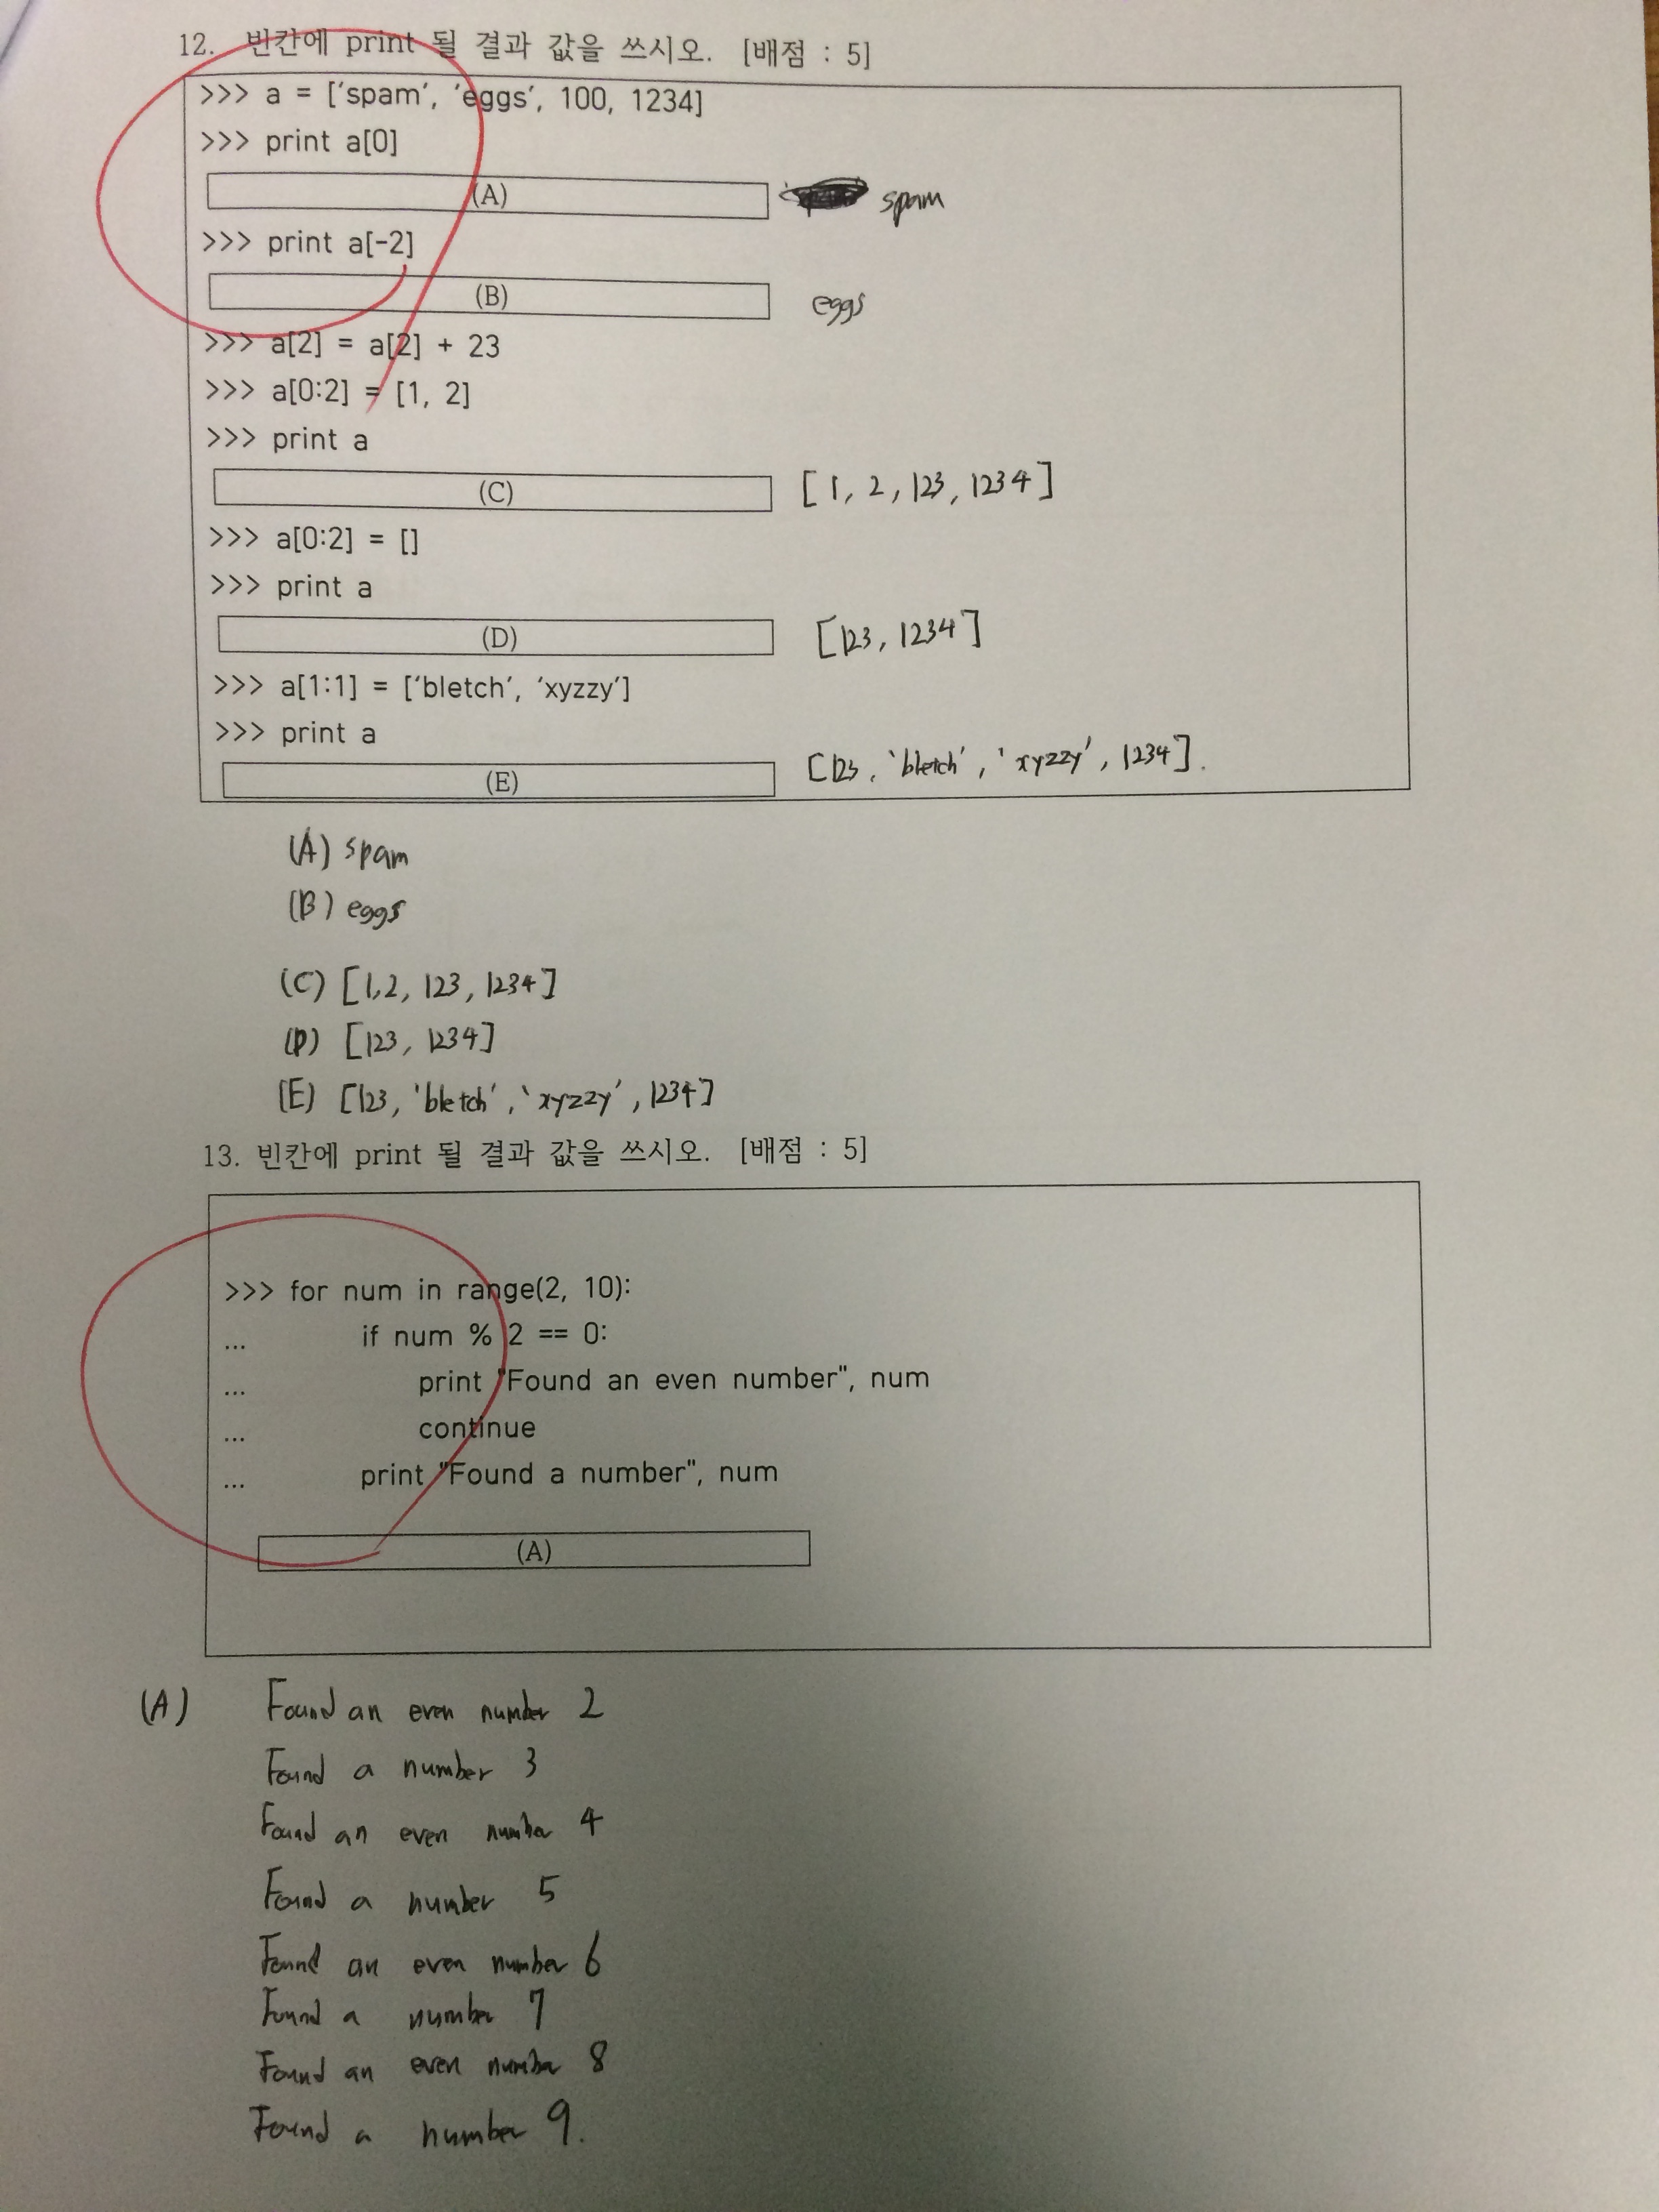 12. 빈칸에 print 될 결과 값을 쓰시오. [배점 : 5]
>>> a = ['spam', 'eggs', 100, 1234]
>>> print a[0]
(A) spam
>>> print a[-2]
(B) eggs
>>> a[2] = a[2] + 23
>>> a[0:2] = [1, 2]
>>> print a
(C) [1, 2, 123, 1234]
>>> a[0:2] = []
>>> print a
(D) [123, 1234]
>>> a[1:1] = ['bletch', 'xyzzy']
>>> print a
(E) [123, 'bletch', 'xyzzy', 1234].
(A) spam
(B) eggs
(C) [1,2, 123, 1234]
(D) [123, 1234]
(E) [123, 'bletch', 'xyzzy', 1234]
13. 빈칸에 print 될 결과 값을 쓰시오. [배점 : 5]
>>> for num in range(2, 10):
... if num % 2 == 0:
... print "Found an even number", num
... continue
... print "Found a number", num
(A)
(A) Found an even number 2
Found a number 3
Found an even number 4
Found a number 5
Found an even number 6
Found a number 7
Found an even number 8
Found a number 9.